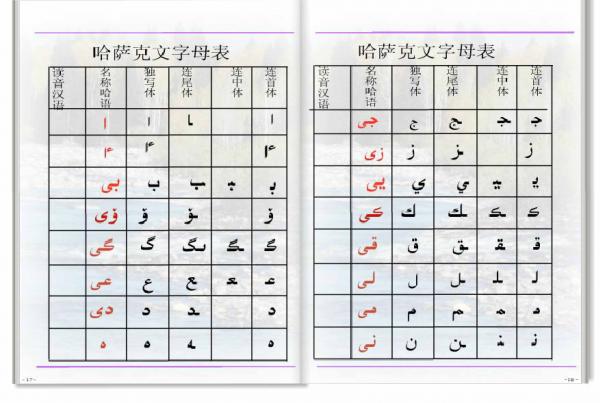 哈萨克文字母表
读音汉语 名称哈语 独写体 连尾体 连中体 连首体
ا ا ـا ا
ٴا ٴا ٴا
بى ب ـب ـبـ بـ
ۆى ۆ ـۆ ۆ
گى گ ـگ ـگـ گـ
عى ع ـع ـعـ عـ
دى د ـد د
ە ە ـە ە
-17-
哈萨克文字母表
读音汉语 名称哈语 独写体 连尾体 连中体 连首体
جى ج ـج ـجـ جـ
زى ز ـز ز
يى ي ـي ـيـ يـ
كى ك ـك ـكـ كـ
قى ق ـق ـقـ قـ
لى ل ـل ـلـ لـ
مى م ـم ـمـ مـ
نى ن ـن ـنـ نـ
-18-